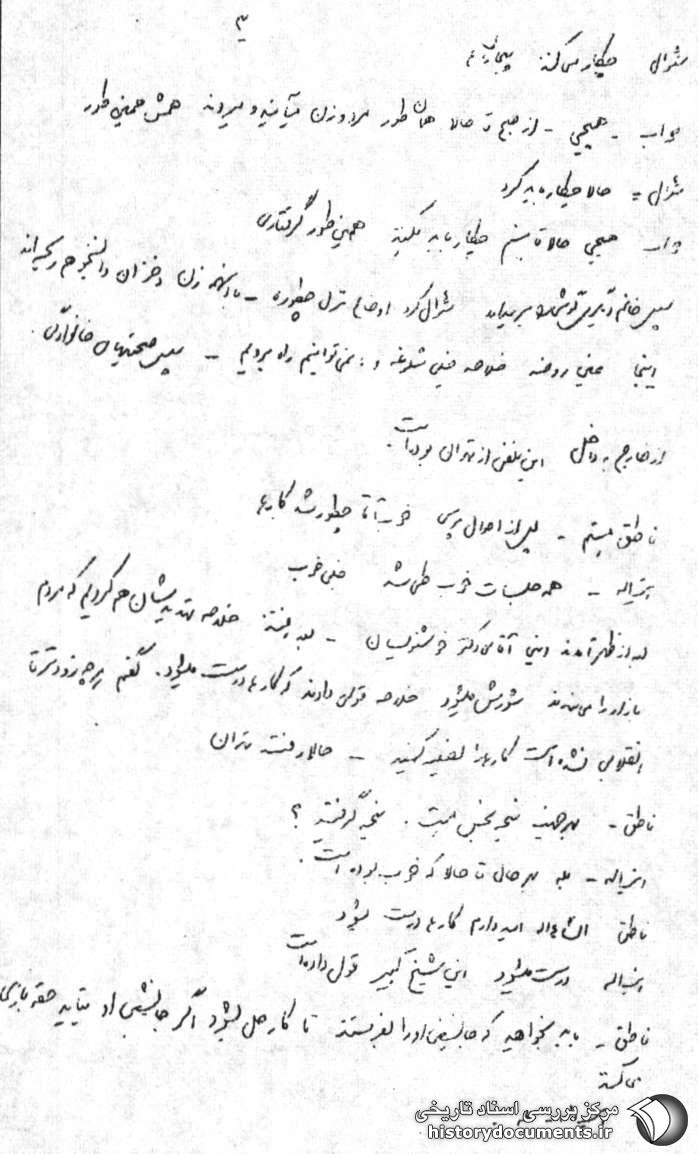 ۳
سئوال چکار می کنند
جواب - هیچی - از صبح تا حالا همان طور مرد و زن میآیند و میروند همش همین طور
سئوال = حالا چکار باید کرد
جواب هیچی حالا تا ببینم چکار باید بکنند همین طور گرفتاری
سپس خانم سئوال کرد اوضاع منزل چطوره - با اینهمه زن دختران دانشجو هم ریخته اند
اینجا عینی روضه خلاصه خیلی شلوغه و نمی توانیم راه برویم - سپس صحبتهای خانوادگی
از خارج به داخل این تلفن از تهران بوده است
ناطق میثم - پس از احوال پرسی خوب آقا چطور شد کارها
یزاله - همه جلسات خوب طی شد خیلی خوب
بعد از ظهر آمدند این آقای دکتر خوشنویسان - بله رفتند خلاصه تهدیدشان هم کردیم که مردم
بازار را می بندند شورش میشود خلاصه قولی دادند که کارها درست میشود. گفتم هر چه زودتر تا
انقلابی نشده است کارها را تصفیه کنید - حالا رفتند تهران
ناطق - بهرجهت نتیجه بخش است. نتیجه گرفتید ؟
یزاله - بله بهرحال تا حالا که خوب بوده است.
ناطق انشاءاله امیدوارم کارها درست بشود
یزاله درست میشود این شیخ کبیر قول داده است
ناطق - باید بخواهید که جانشین او را بفرستند تا کار حل بشود اگر جانشین او نیاید حقه بازی
می کنند
مرکز بررسی اسناد تاریخی
historydocuments.ir